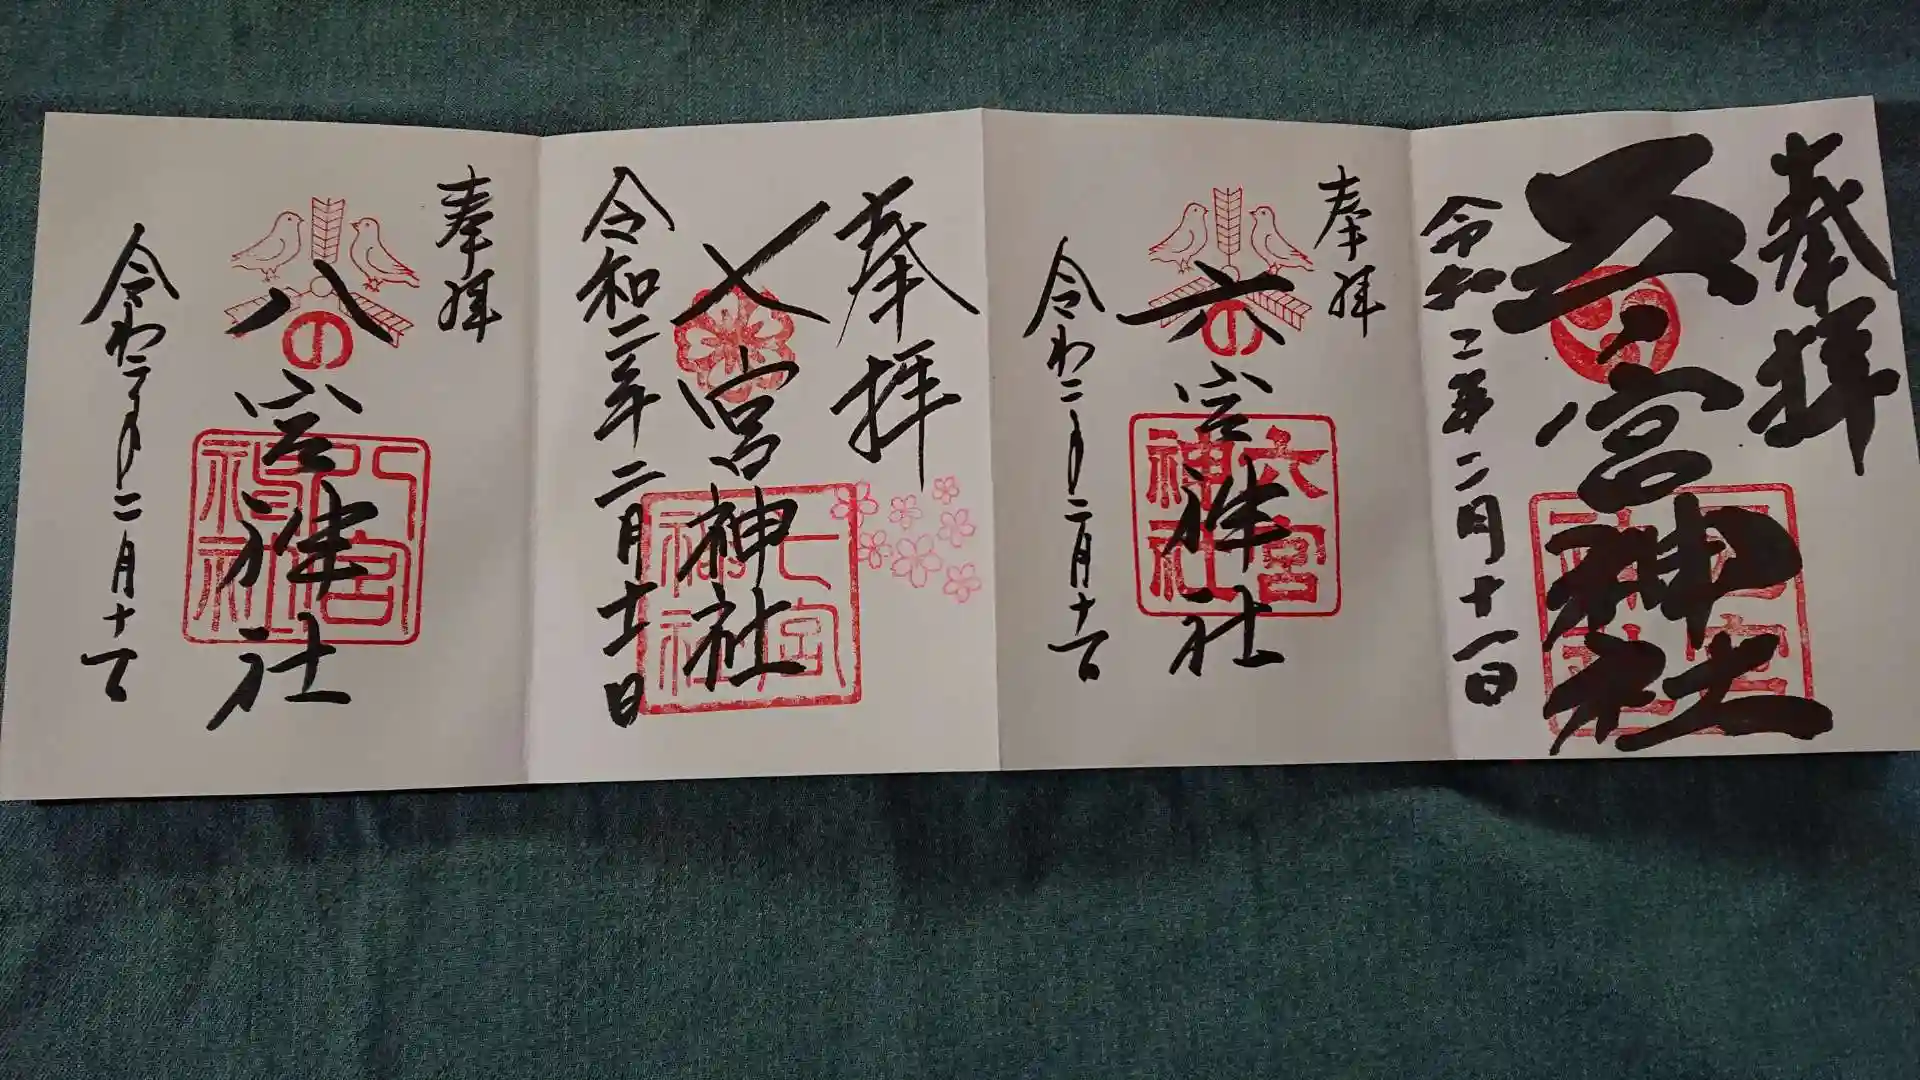 奉拝
五ノ宮神社
五宮神社
令和二年二月十一日
奉拝
六宮神社
の
六宮神社
令和二年二月十一日
奉拝
七宮神社
七宮神社
令和二年二月十一日
奉拝
八宮神社
の
八宮神社
令和二年二月十一日